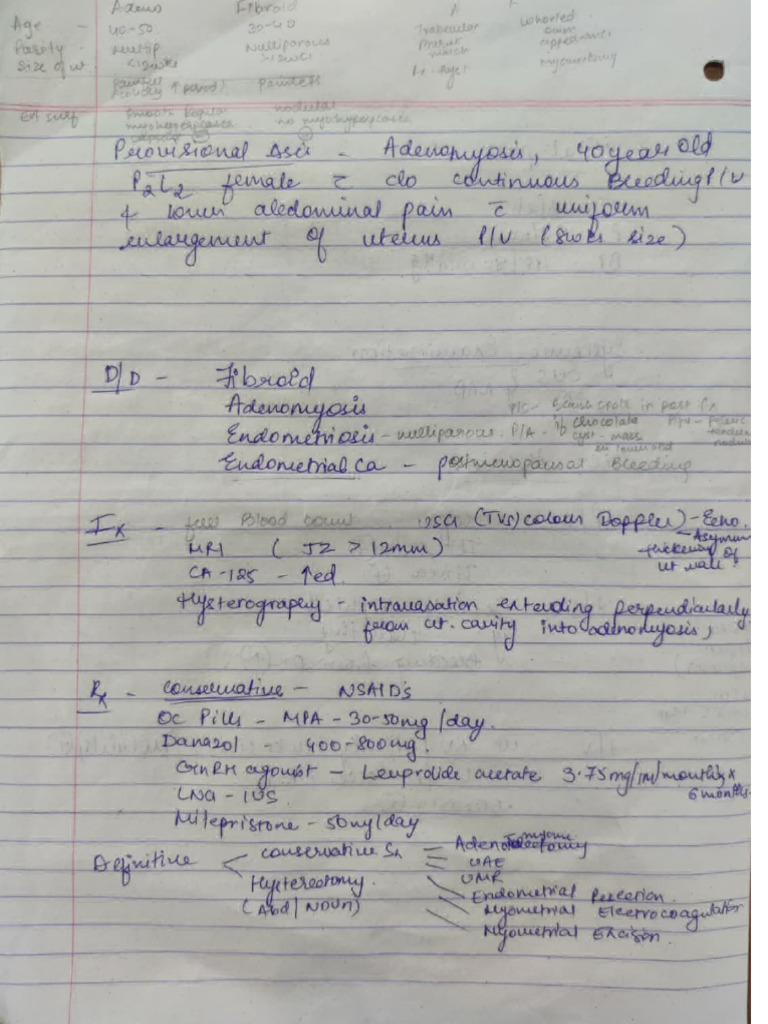 Adeno Fibroid A
Age - 40-50 30-40 Trabecular whorled
Parity - Multip Nulliparous appearance
Size of ut. <12wks myomectomy
Painful ↑ Painless
Ext surf Smooth Regular nodular
Provisional - Adenomyosis, 40 year old
P2L2 female c̄ c/o continuous Bleeding P/V
& lower abdominal pain c̄ uniform
enlargement of uterus P/V (8wks size)
D/D - Fibroid
Adenomyosis
Endometriosis - nulliparous. P/A - if chocolate cyst - mass
Endometrial Ca - postmenopausal Bleeding
Ix - full Blood count USG (TVS) colour Doppler) - Echo.
- Asymm thickening of ut wall
MRI ( JZ > 12mm)
CA-125 - ↑ed.
Hysterography - intravasation extending perpendicularly
from ut. cavity into adenomyosis,
Rx - conservative - NSAID's
OC Pills - MPA - 30-50mg /day.
Danazol - 400-800mg.
GnRH agonist - Leuprolide acetate 3.75mg/im/monthly x 6 months.
LNG - IUS
Mifepristone - 50mg/day
Definitive < conservative Sx Adenomyomectomy
UAE
Hysterectomy. UMR
Endometrial Resection.
(Abd/ Myometrial Electrocoagulation
Myometrial Excision.